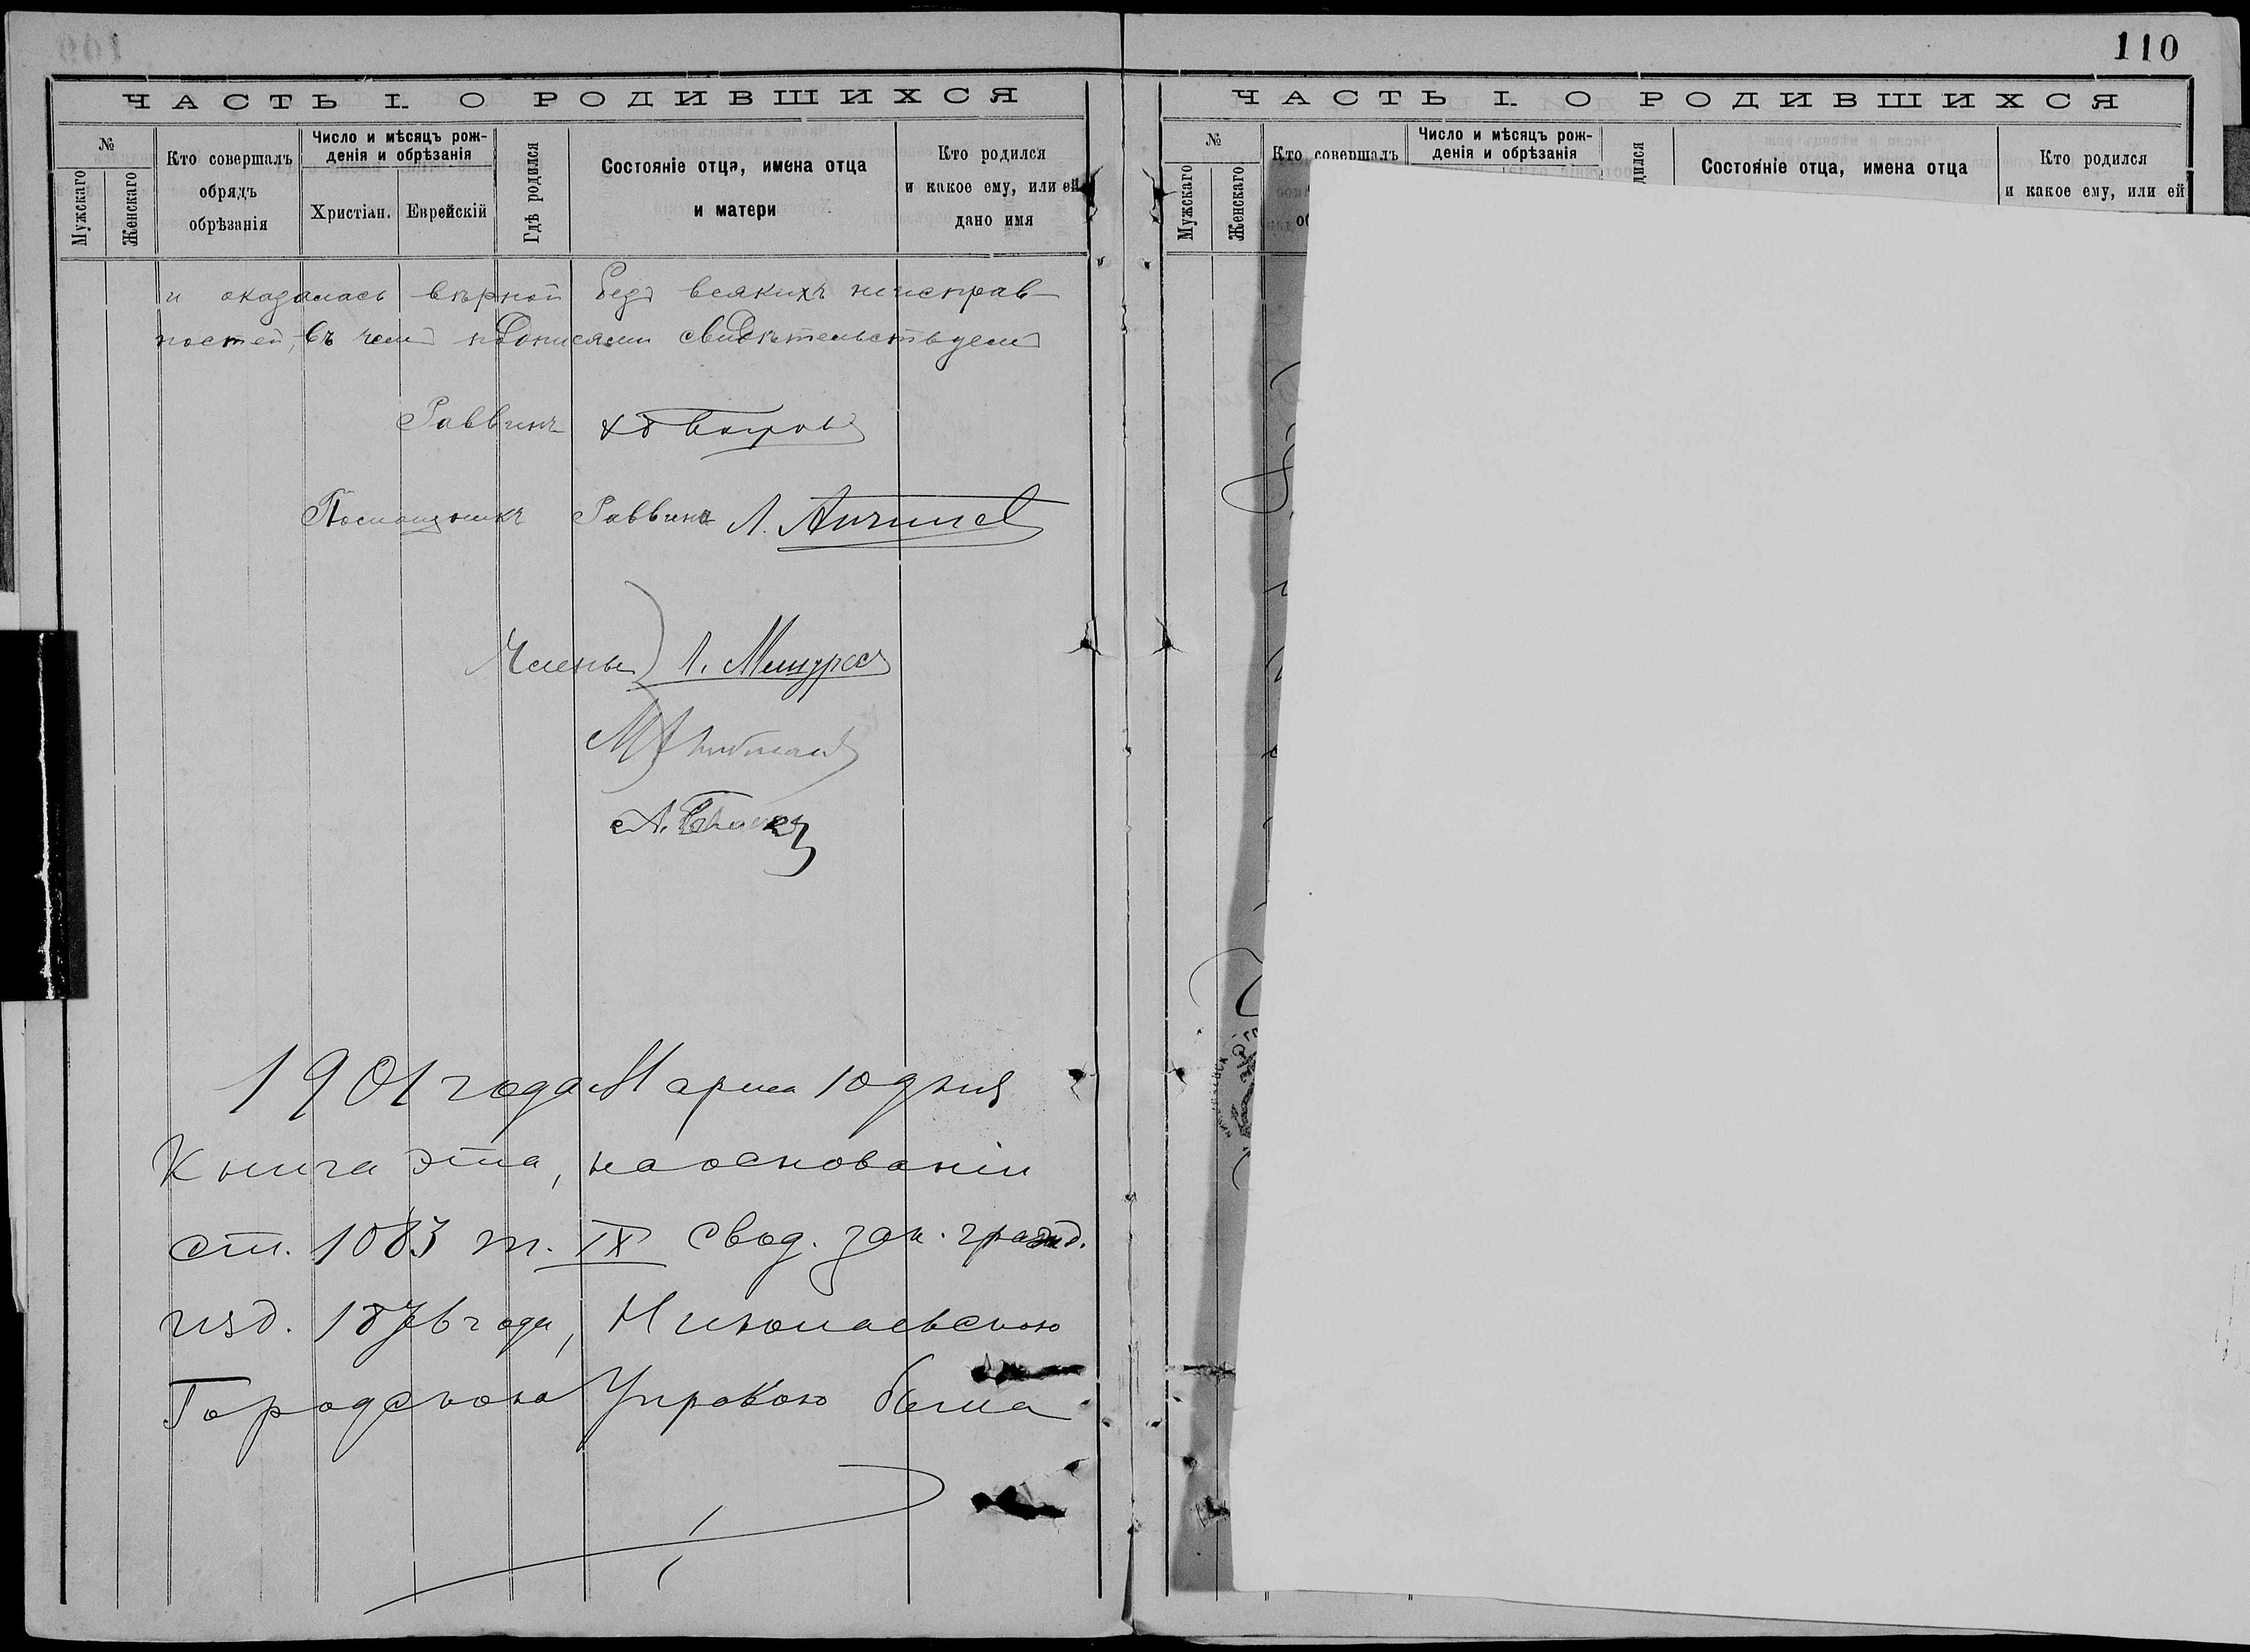 110
ЧАСТЬ I. О РОДИВШИХСЯ
№
Мужскаго
Женскаго
Кто совершалъ
обрядъ
обрѣзанія
Число и мѣсяцъ рож-
денія и обрѣзанія
Христіан.
Еврейскій
Гдѣ родился
Состояніе отца, имена отца
и матери
Кто родился
и какое ему, или ей
дано имя
и оказалась вѣрной безъ всякихъ неисправ-
ностей, въ чемъ подписями свидѣтельствуемъ
Раввинъ
Помощникъ Раввина Л.
Члены Л.
М
А.
1901 года Марта 10 дня
Книга эта, на основаніи
ст. 1083 т. IX свод. зак. гражд.
изд. 1876 года, Николаевскою
Городскою Управою была
ЧАСТЬ I. О РОДИВШИХСЯ
№
Мужскаго
Женскаго
Кто совершалъ
Число и мѣсяцъ рож-
денія и обрѣзанія
дился
Состояніе отца, имена отца
Кто родился
и какое ему, или ей